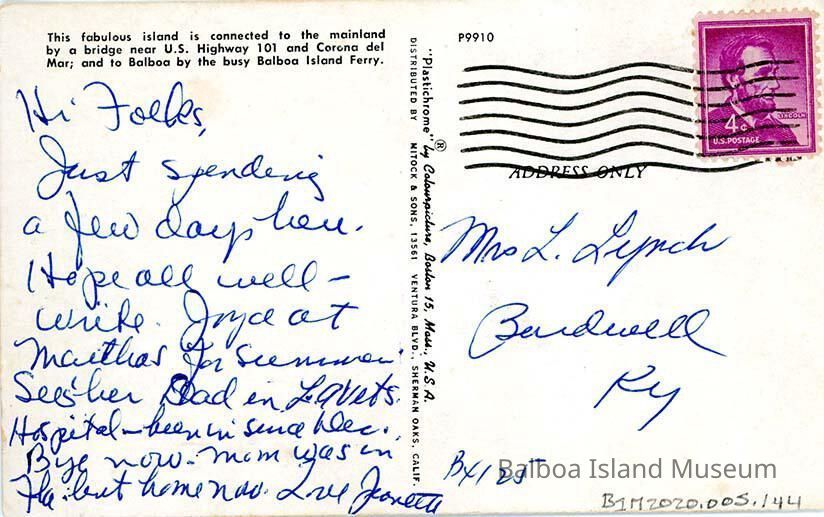 This fabulous island is connected to the mainland
by a bridge near U.S. Highway 101 and Corona del
Mar; and to Balboa by the busy Balboa Island Ferry.
Hi Folks,
Just spending
a few days here.
Hope all well –
write. Joyce at
Marthas for summer
Sees her Dad in L.A Vets.
Hospital – been in since Dec.,
Bye now. Mom was in
Fla. but home now. Love Jeanette
"Plastichrome"® by Colourpicture, Boston 15, Mass., U.S.A.
DISTRIBUTED BY MITOCK & SONS, 13561 VENTURA BLVD., SHERMAN OAKS, CALIF.
P9910
LINCOLN
4¢
U.S. POSTAGE
ADDRESS ONLY
Mrs L. Lynch
Bardwell
Ky
Bx 125
Balboa Island Museum
BIM2020.005.144